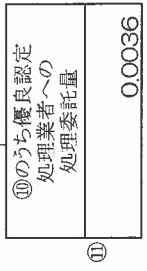 ⑩のうち優良認定
処理業者への
処理委託量
⑪
0.0036